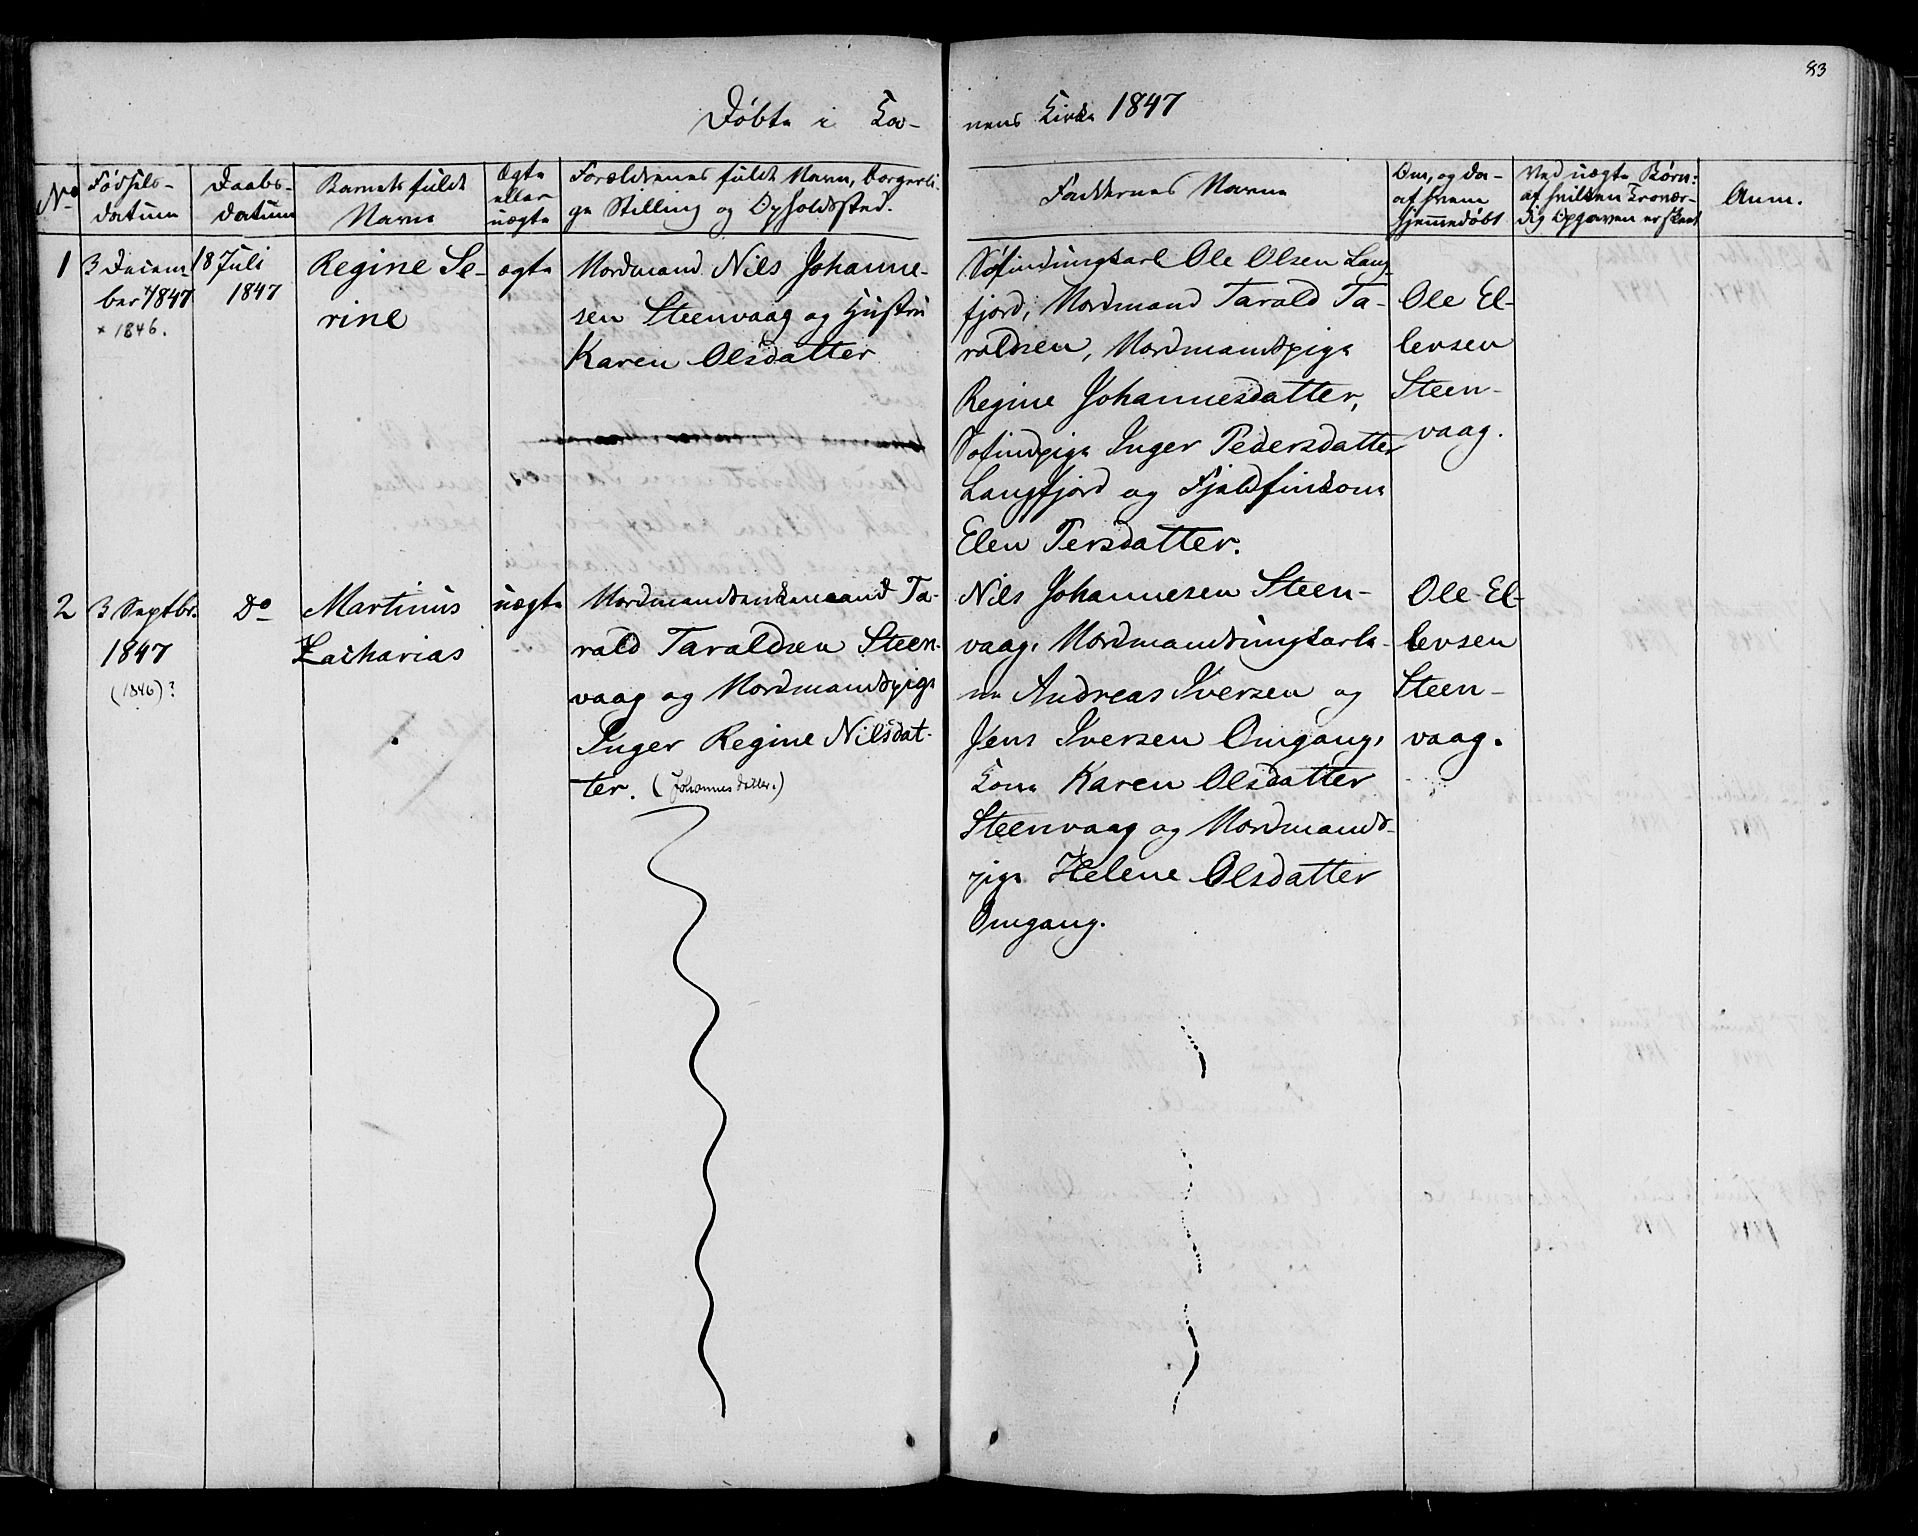 83
Døbte i Kov-
nens Kirke 1847
No
Fødsels-
datum
Daabs-
datum
Barnets fulde
Navn
Ægte
eller
uægte
Forældrenes fulde Navn, borgerli-
ge Stilling og Opholdssted.
Faddernes Navne
Om, og da
af hvem
hjemmedøbt
Ved uægte Børn:
af hvilken Trovær-
dig Opgaven er skeet
Anm.
1
3 Decem-
ber 1847
× 1846.
18 Juli
1847
Regine Se-
rine
ægte
Nordmand Nils Johanne-
sen Steenvaag og Hustru
Karen Olsdatter
Søfindungkarl Ole Olsen Lang-
fjord, Nordmand Tarald Ta-
raldsen, Nordmandspige
Regine Johannesdatter,
Søfindpige Inger Pedersdatter
Langfjord og Fjeldfinkone
Elen Persdatter.
Ole El-
levsen
Steen-
vaag.
2
3 Septbr.
1847
(1846)?
Do
Martinus
Zacharias
uægte
Nordmandsenkemand Ta-
rald Taraldsen Steen-
vaag og Nordmandspige
Inger Regine Nilsdat-
ter. (Johannesdatter.)
Nils Johannesen Steen-
vaag, Nordmandsungkarle-
ne Andreas Iversen og
Jens Iversen Omgang,
Kone Karen Olsdatter
Steenvaag og Nordmands-
pige Helene Olsdatter
Omgang.
Ole El-
levsen
Steen-
vaag.